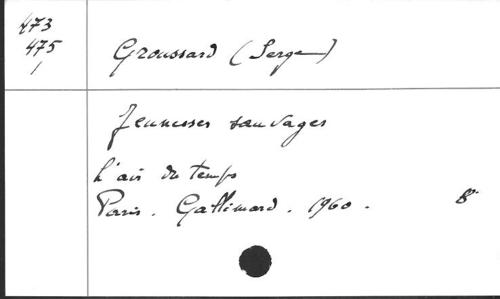 473
475
/
Groussard (Serge)
Jeunesses sauvages
L'air du temps
Paris. Gallimard. 1960. 8°